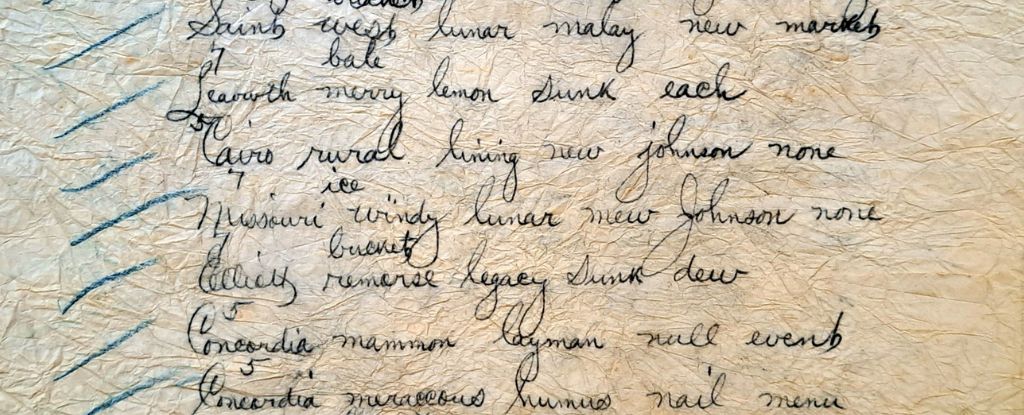 Saint west lunar malay new market
7 bale
Leavwth merry lemon sunk each
5
Cairo rural lining new johnson none
7 ice
Missouri windy lunar mew Johnson none
bucket
Elliott remorse legacy sunk dew
5
Concordia mammon layman null event
5
Concordia meraccous humus nail menu